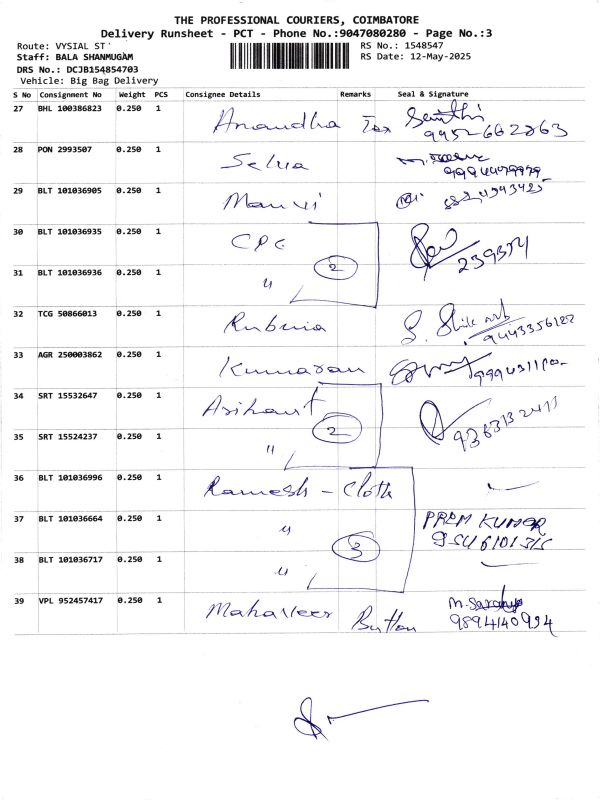 THE PROFESSIONAL COURIERS, COIMBATORE
Delivery Runsheet - PCT - Phone No.:9047080280 - Page No.:3
Route: VYSIAL ST
RS No.: 1548547
Staff: BALA SHANMUGAM
RS Date: 12-May-2025
DRS No.: DCJB154854703
Vehicle: Big Bag Delivery
S No Consignment No Weight PCS Consignee Details Remarks Seal & Signature
27 BHL 100386823 0.250 1 Anandha Tex
9952662863
28 PON 2993507 0.250 1 Selva
29 BLT 101036905 0.250 1
30 BLT 101036935 0.250 1 CPC
2 239354
31 BLT 101036936 0.250 1 "
32 TCG 50866013 0.250 1 Rubenia
9443356122
33 AGR 250003862 0.250 1 Kumaran
34 SRT 15532647 0.250 1 Arihant
2 9363132411
35 SRT 15524237 0.250 1 "
36 BLT 101036996 0.250 1 Ramesh - Cloth
37 BLT 101036664 0.250 1 " PREM KUMER
3
38 BLT 101036717 0.250 1 "
39 VPL 952457417 0.250 1 Mahaveer Button
9894140994